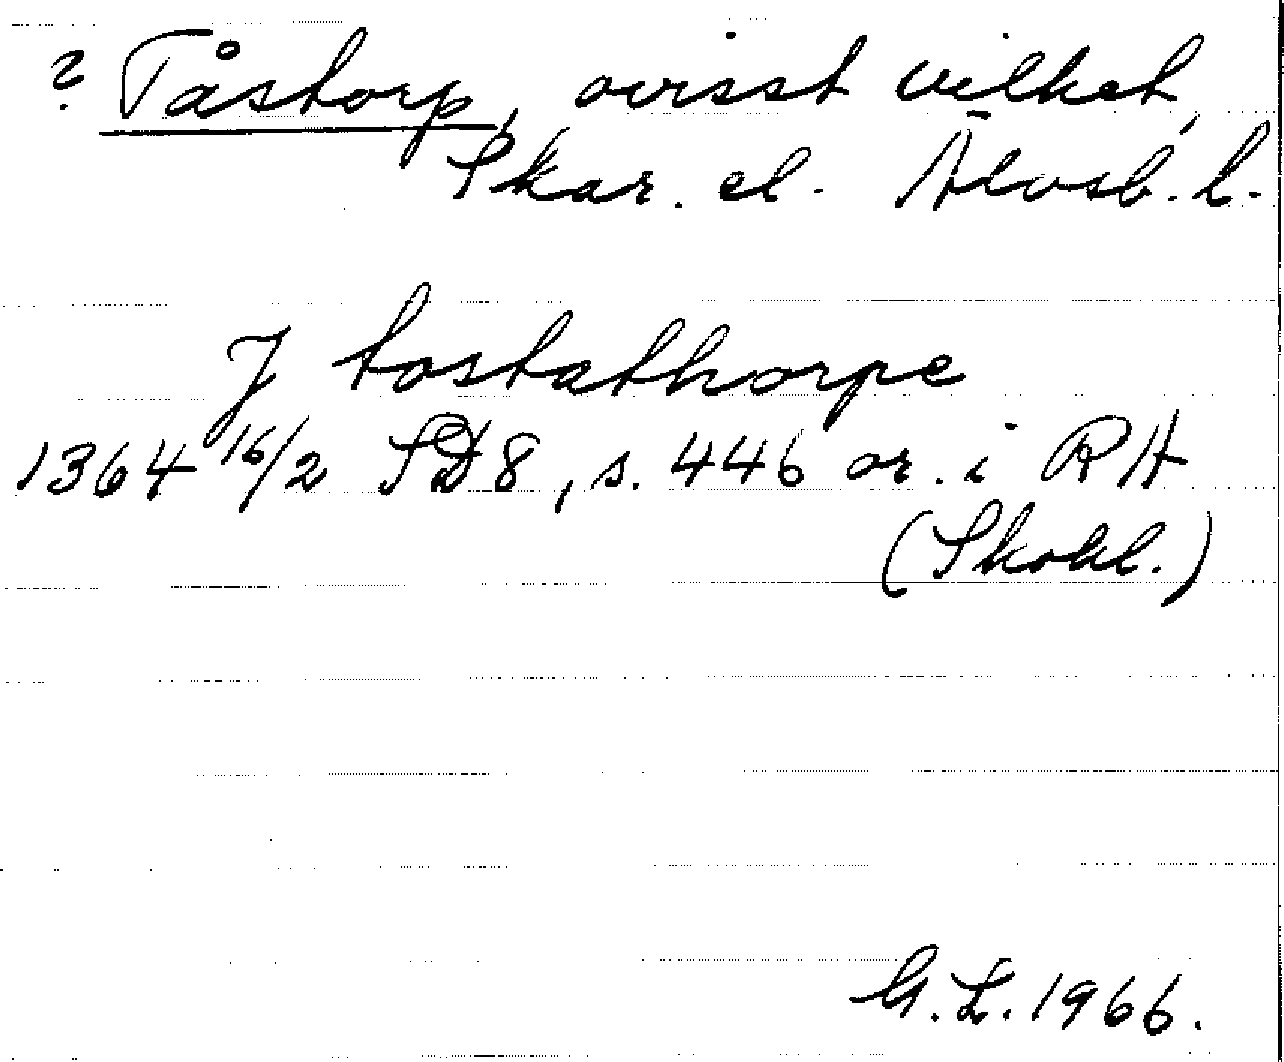 ? Tåstorp, ovisst vilket,
Skar. el. Älvsb. l.
J tostathorpe
1364 16/2 SD 8, s. 446 or. i RA
(Skokl.)
G.L. 1966.